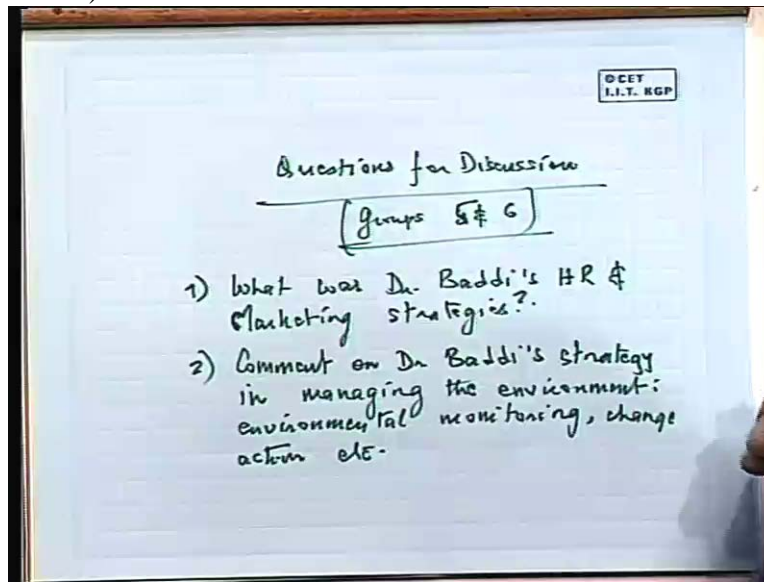 © CET
I.I.T. KGP
Questions for Discussion
(groups 5 & 6)
1) What was Dr. Baddi's HR &
Marketing strategies?.
2) Comment on Dr Baddi's strategy
in managing the environment:
environmental monitoring, change
action etc.